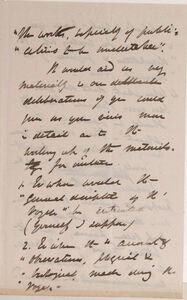 "the works, especially of public-
"ations to be undertaken".
It would aid us very
materially in our
deliberations if you could
give us your views more
in detail as to the
working up of the materials.
for instance
1. To whom would the
"General description of the
Voyage" be entrusted
(Yourself I suppose)
2. Is then the "account of
"observations, physical &
"zoological, made during the
"Voyage"